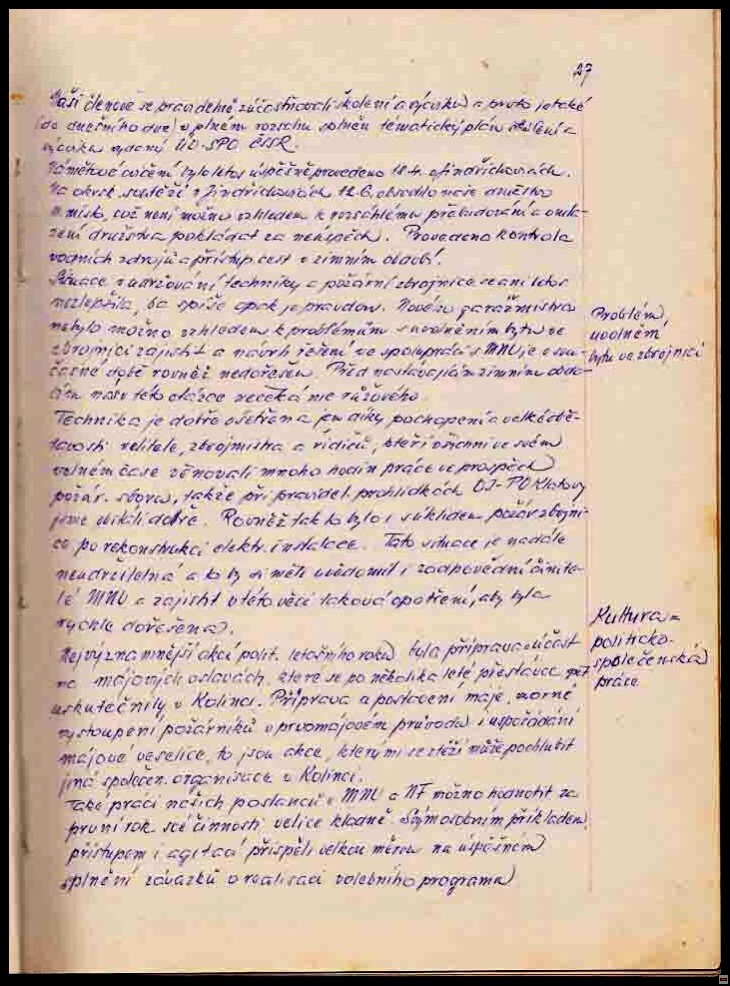 27
Naši členové se pravidelně zúčastňovali školení a výcviku a proto je také
(do dnešního dne) v plném rozsahu splněn tématický plán školení a
výcviku vydaný ÚV-SPO ČSSR.
Námětové cvičení bylo letos úspěšně provedeno 18.4. v Jindřichovicích.
Na okrsk. soutěži v Jindřichovicích 12.6. obsadilo naše družstvo
místo, což není možno vzhledem k rozsáhlému přebudování a omla-
zení družstva pokládat za neúspěch. Provedena kontrola
vodních zdrojů a přístup. cest v zimním období.
Situace v udržování techniky a požární zbrojnice se ani letos
nezlepšila, ba spíše opak je pravdou. Nového garážmistra
nebylo možno vzhledem k problémům s uvolněním bytu ve
zbrojnici zajistit a návrh řešení ve spolupráci s MNV je v sou-
časné době rovněž nedořešen. Před nastávajícím zimním obdo-
bím nás v této otázce nečeká nic růžového.
Problém
uvolnění
bytu ve zbrojnici
Technika je dobře ošetřena jen díky pochopení a velké obě-
tavosti velitele, zbrojmistra a řidičů, kteří všichni ve svém
volném čase věnovali mnoho hodin práce ve prospěch
požár. sboru, takže při pravidel. prohlídkách OI-PO Klatovy
jsme získali dobře. Rovněž tak to bylo i s úklidem požár. zbrojni-
ce po rekonstrukci elektr. instalace. Tato situace je nadále
neudržitelná a to by si měli uvědomit i zodpovědní činite-
lé MNV a zajistit v této věci taková opatření, aby byla
rychle dořešena.
Kultura =
politicko-
společenská
práce
Nejvýznamnější akcí polit. letošního roku byla příprava a účast
na májových oslavách, které se po několika leté přestávce
uskutečnily v Kolinci. Příprava a postavení máje, vzorné
vystoupení požárníků v prvomájovém průvodu i uspořádání
májové veselice, to jsou akce, kterými se stěží může pochlubit
jiná společen. organisace v Kolinci.
Také práci našich poslanců v MNV a NF možno hodnotit za
první rok své činnosti velice kladně. Svým osobním příkladem,
přístupem i agitací přispěli velkou měrou na úspěšném
splnění závazků o realisaci volebního programu